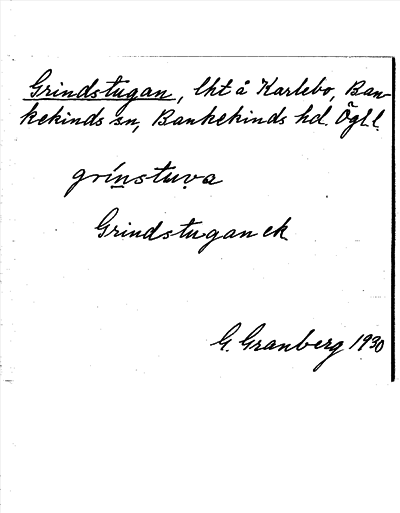 Grindstugan, lht å Karlebo, Ban-
kekinds sn, Bankekinds hd. Ögl.
grínstuva
Grindstugan ek.
G. Granberg 1930